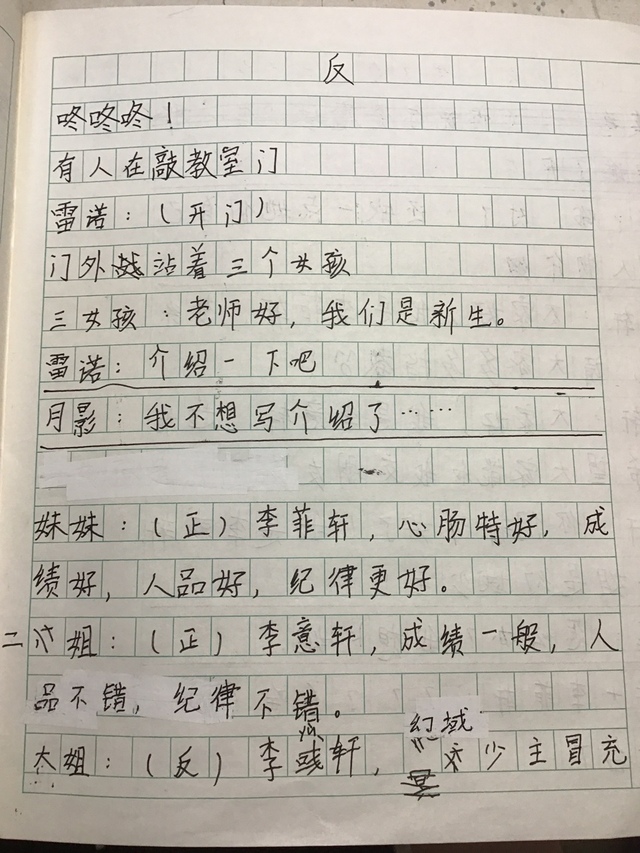 反
咚咚咚！
有人在敲教室门
雷诺：（开门）
门外站着三个女孩
三女孩：老师好，我们是新生。
雷诺：介绍一下吧
月影：我不想写介绍了……
妹妹：（正）李菲轩，心肠特好，成
绩好，人品好，纪律更好。
二姐：（正）李意轩，成绩一般，人
品不错，纪律不错。
幻域
大姐：（反）李彧轩，少主冒充